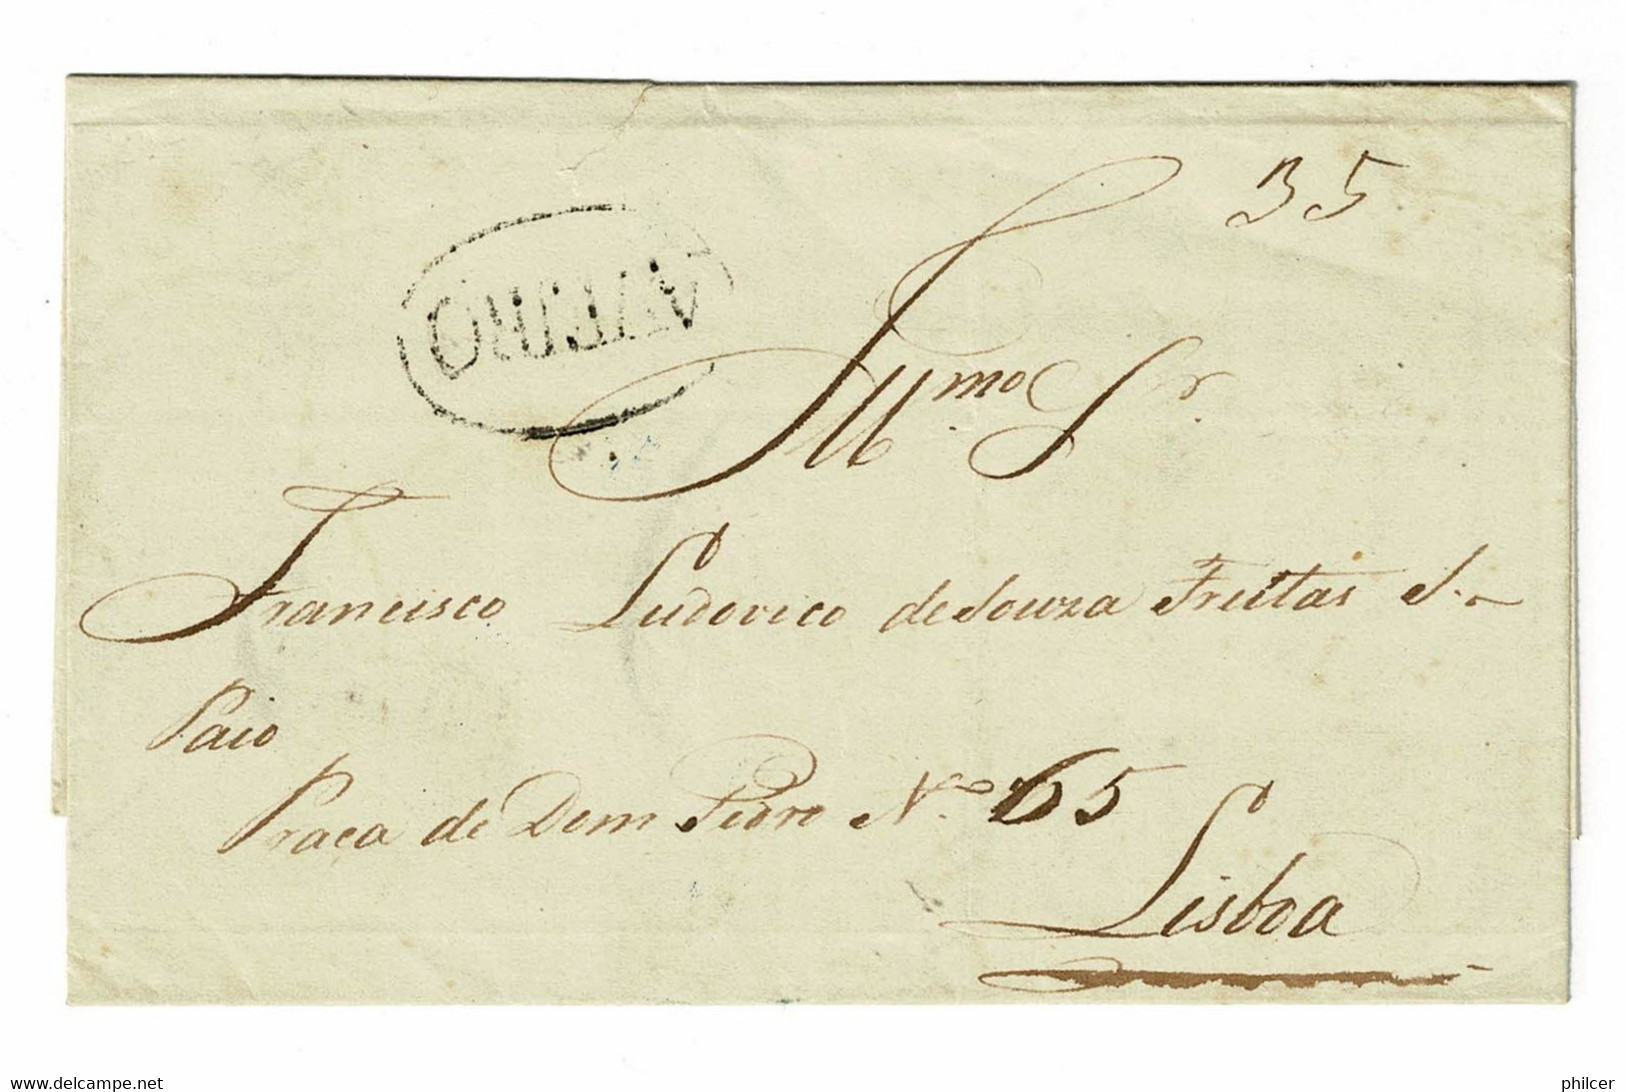 35
AVEIRO
Illmo Sr
Francisco Ludovico de Souza Freitas S.
Paio
Praca de Dom Pedro No 65
Lisboa
www.delcampe.net
philcer